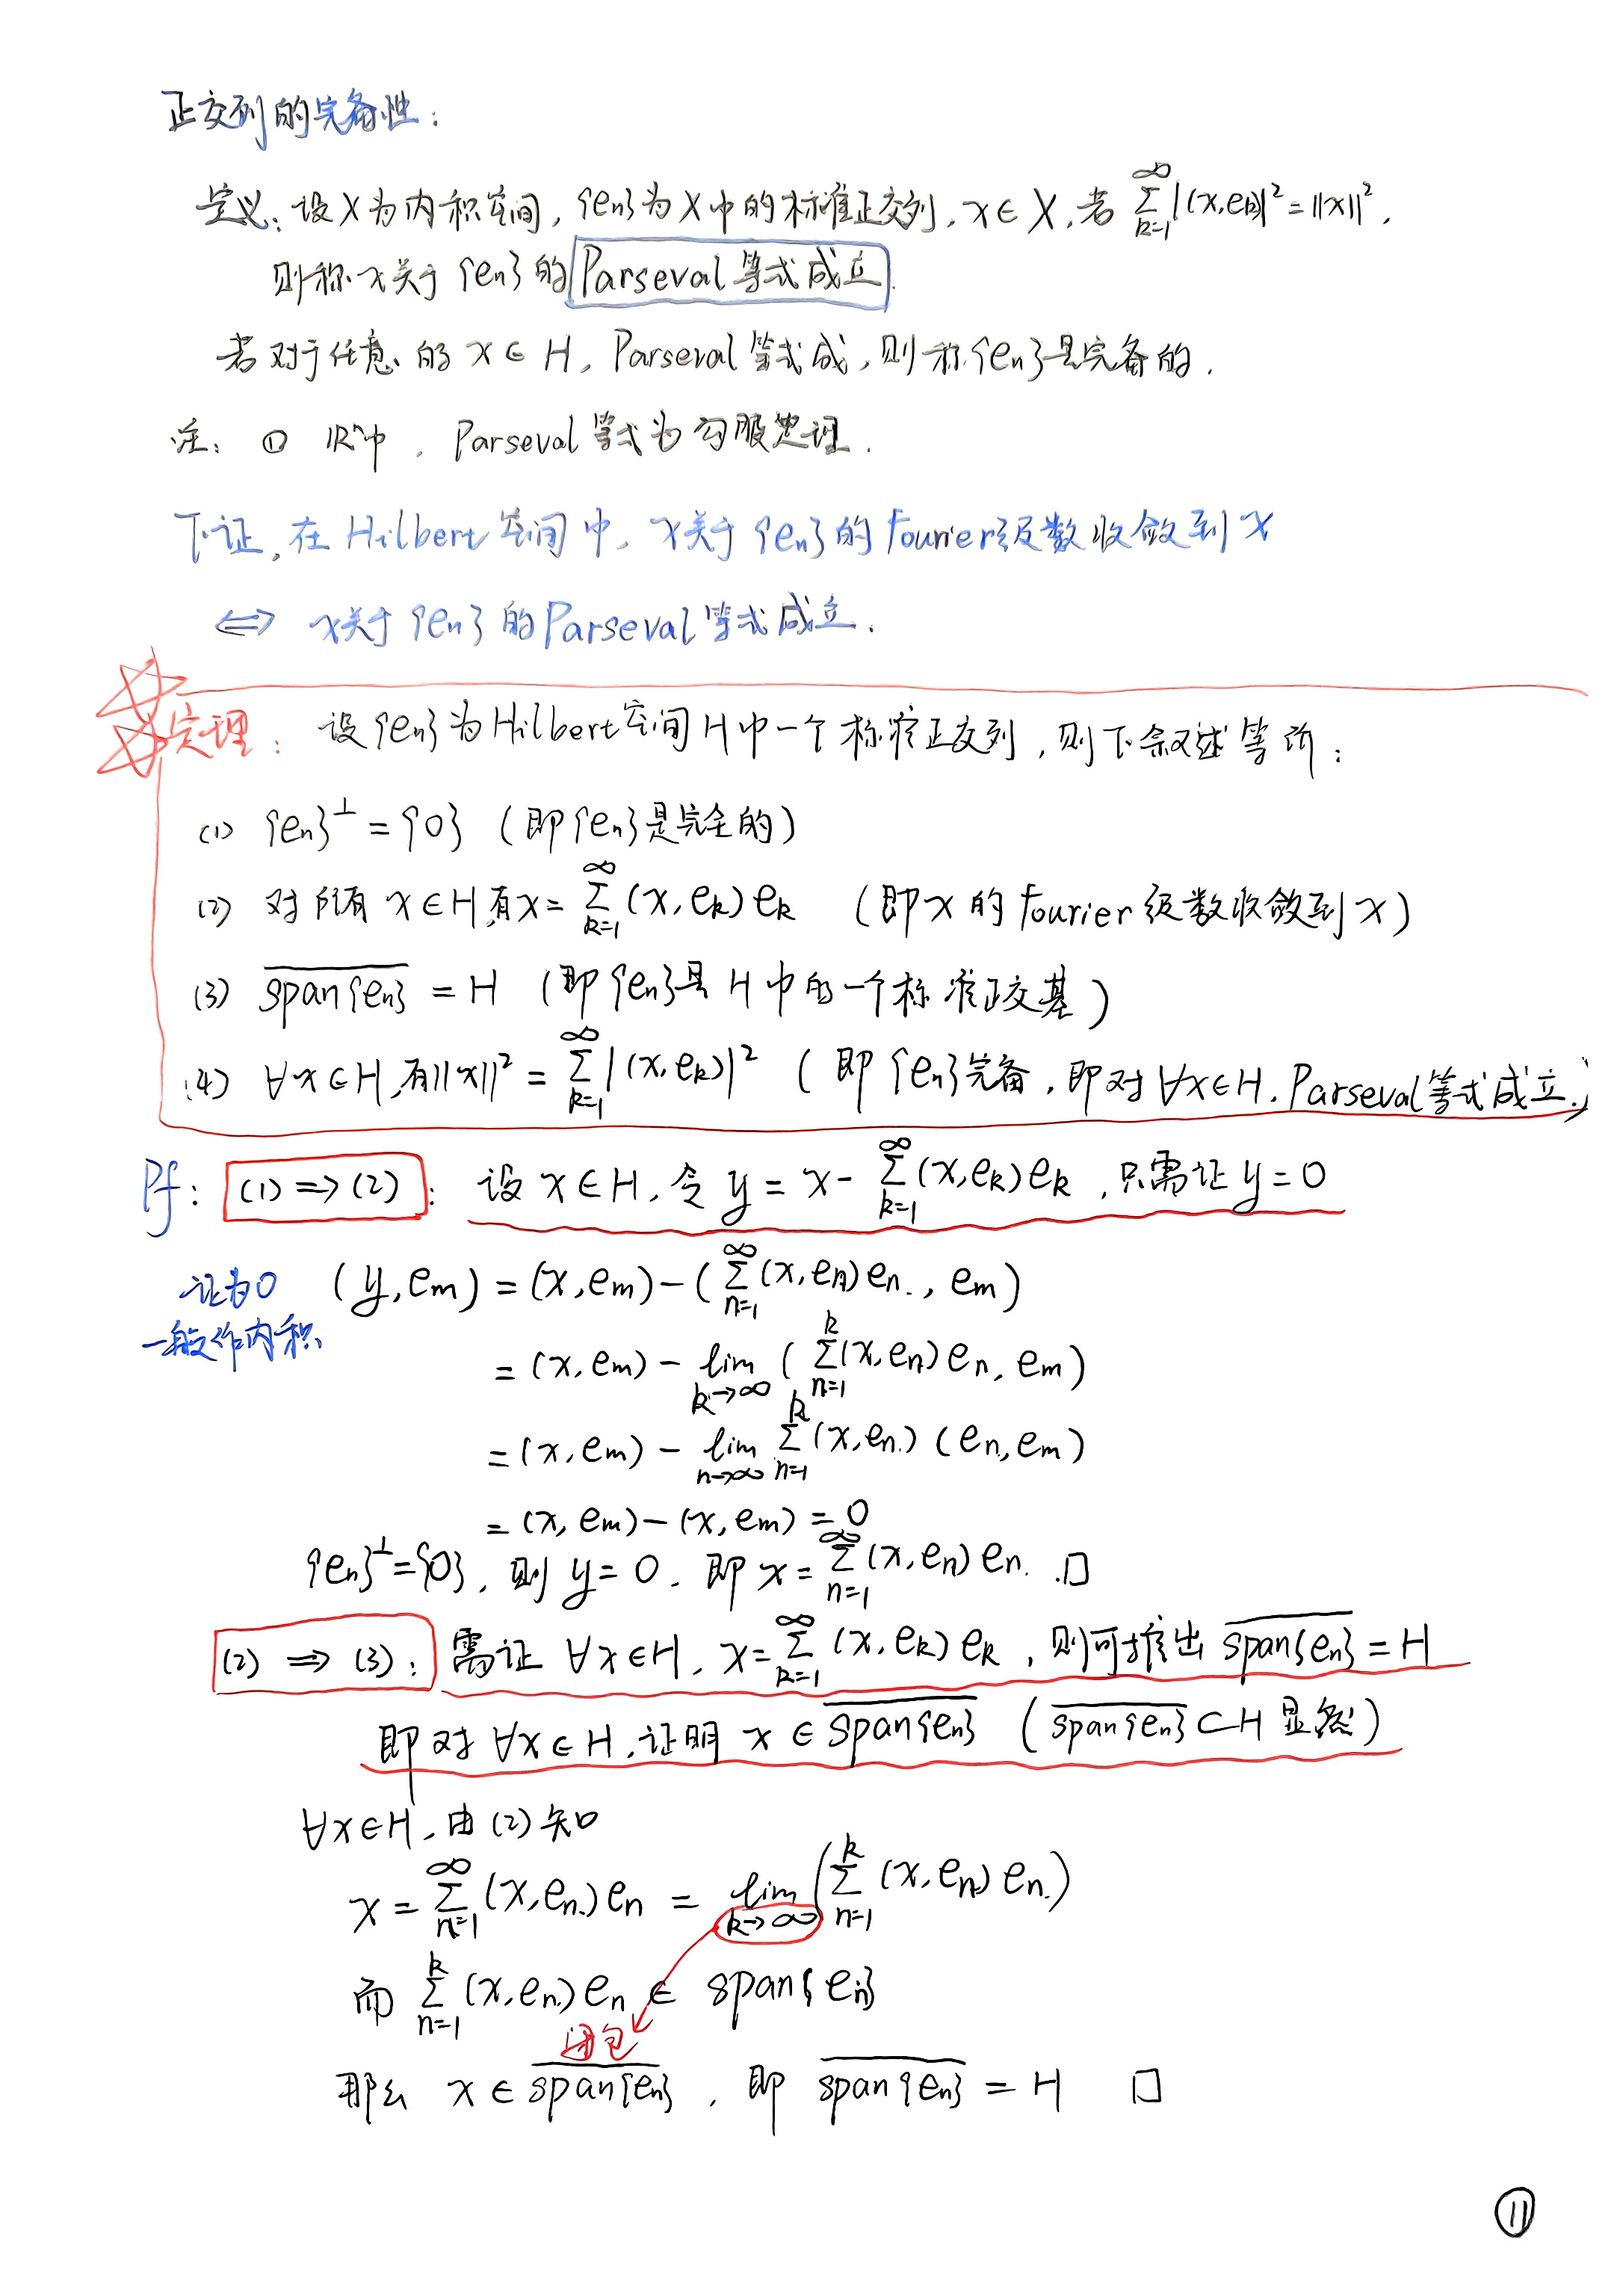 正交列的完备性:
定义: 设X为内积空间, {en}为X中的标准正交列, x∈X, 若 ∑_{k=1}^{∞}|(x,ek)|²=‖x‖²,
则称x关于{en}的Parseval等式成立.
若对于任意的x∈H, Parseval等式成, 则称{en}是完备的.
注: ① ℝⁿ中, Parseval等式为勾股定理.
下证, 在Hilbert空间中, x关于{en}的Fourier级数收敛到x
⟺ x关于{en}的Parseval等式成立.
定理: 设{en}为Hilbert空间H中一个标准正交列, 则下叙述等价:
(1) {en}^⊥={0} (即{en}是完全的)
(2) 对所有x∈H,有x=∑_{k=1}^{∞}(x,ek)ek (即x的Fourier级数收敛到x)
(3) \overline{span{en}}=H (即{en}是H中的一个标准正交基)
(4) ∀x∈H,有‖x‖²=∑_{k=1}^{∞}|(x,ek)|² (即{en}完备,即对∀x∈H,Parseval等式成立.)
Pf: (1)⟹(2): 设x∈H,令y=x-∑_{k=1}^{∞}(x,ek)ek,只需证y=0
证为0 (y,em)=(x,em)-(∑_{n=1}^{∞}(x,en)en,em)
一般作内积 =(x,em)-lim_{k→∞}(∑_{n=1}^{k}(x,en)en,em)
=(x,em)-lim_{n→∞}∑_{n=1}^{k}(x,en)(en,em)
=(x,em)-(x,em)=0
{en}^⊥={0},则y=0. 即x=∑_{n=1}^{∞}(x,en)en. □
(2)⟹(3): 需证∀x∈H, x=∑_{k=1}^{∞}(x,ek)ek,则可推出\overline{span{en}}=H
即对∀x∈H,证明x∈\overline{span{en}} (\overline{span{en}}⊂H显然)
∀x∈H,由(2)知
x=∑_{n=1}^{∞}(x,en)en=lim_{k→∞}(∑_{n=1}^{k}(x,en)en)
而∑_{n=1}^{k}(x,en)en∈span{en}
闭包
那么x∈\overline{span{en}},即\overline{span{en}}=H □
⑪